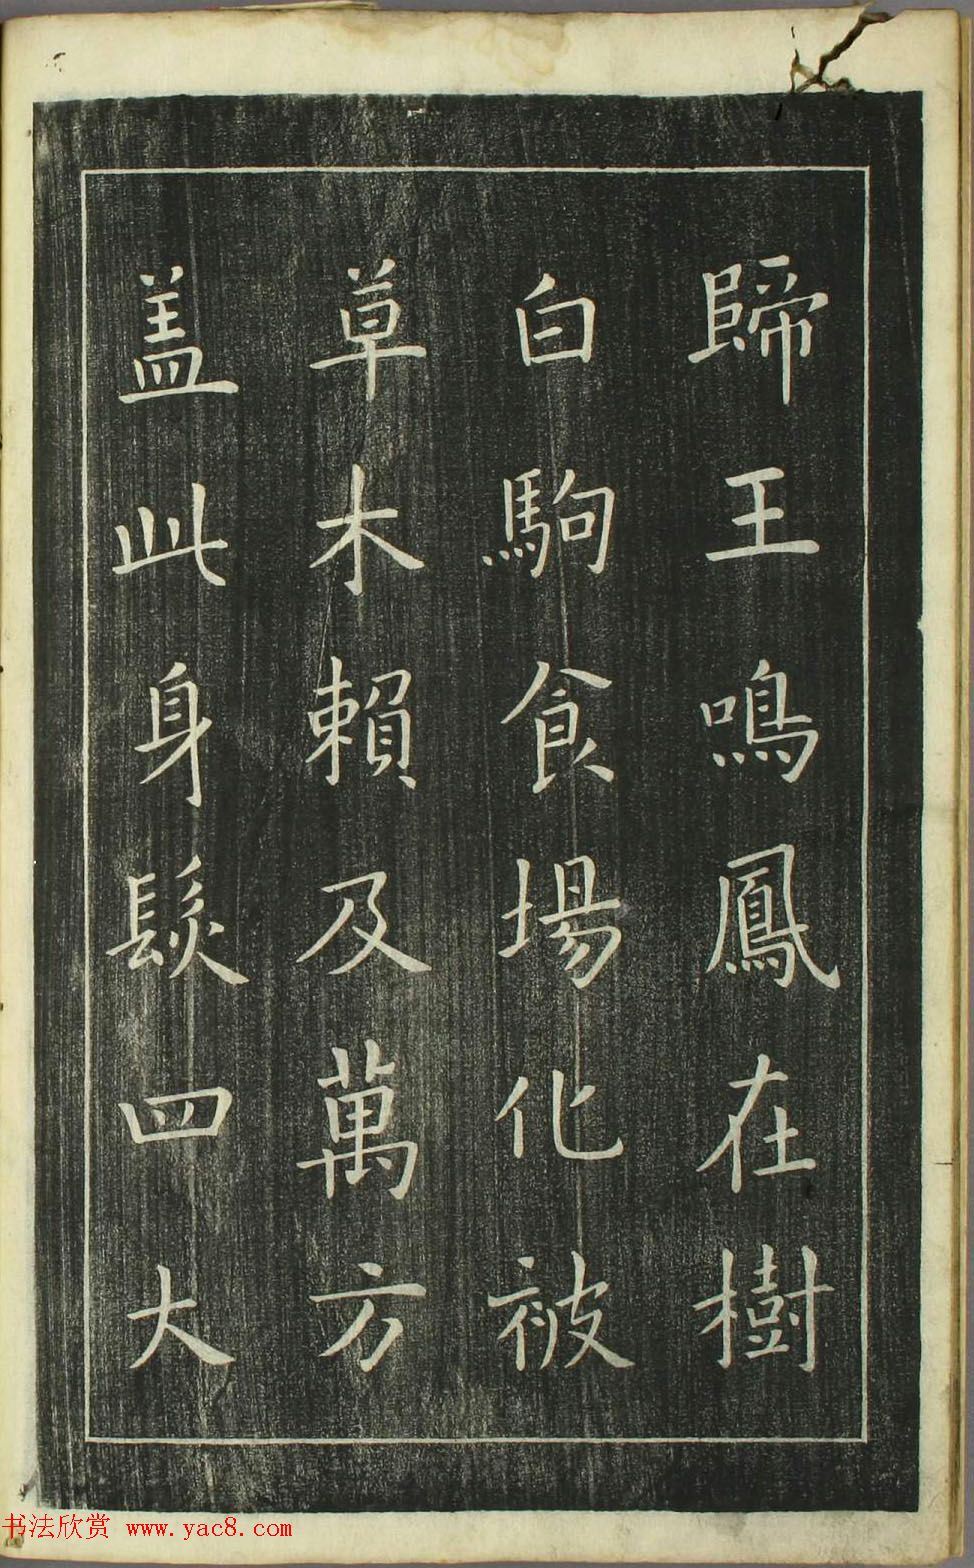 歸王鳴鳳在樹
白駒食場化被
草木賴及萬方
盖此身髮四大
书法欣赏 www.yac8.com